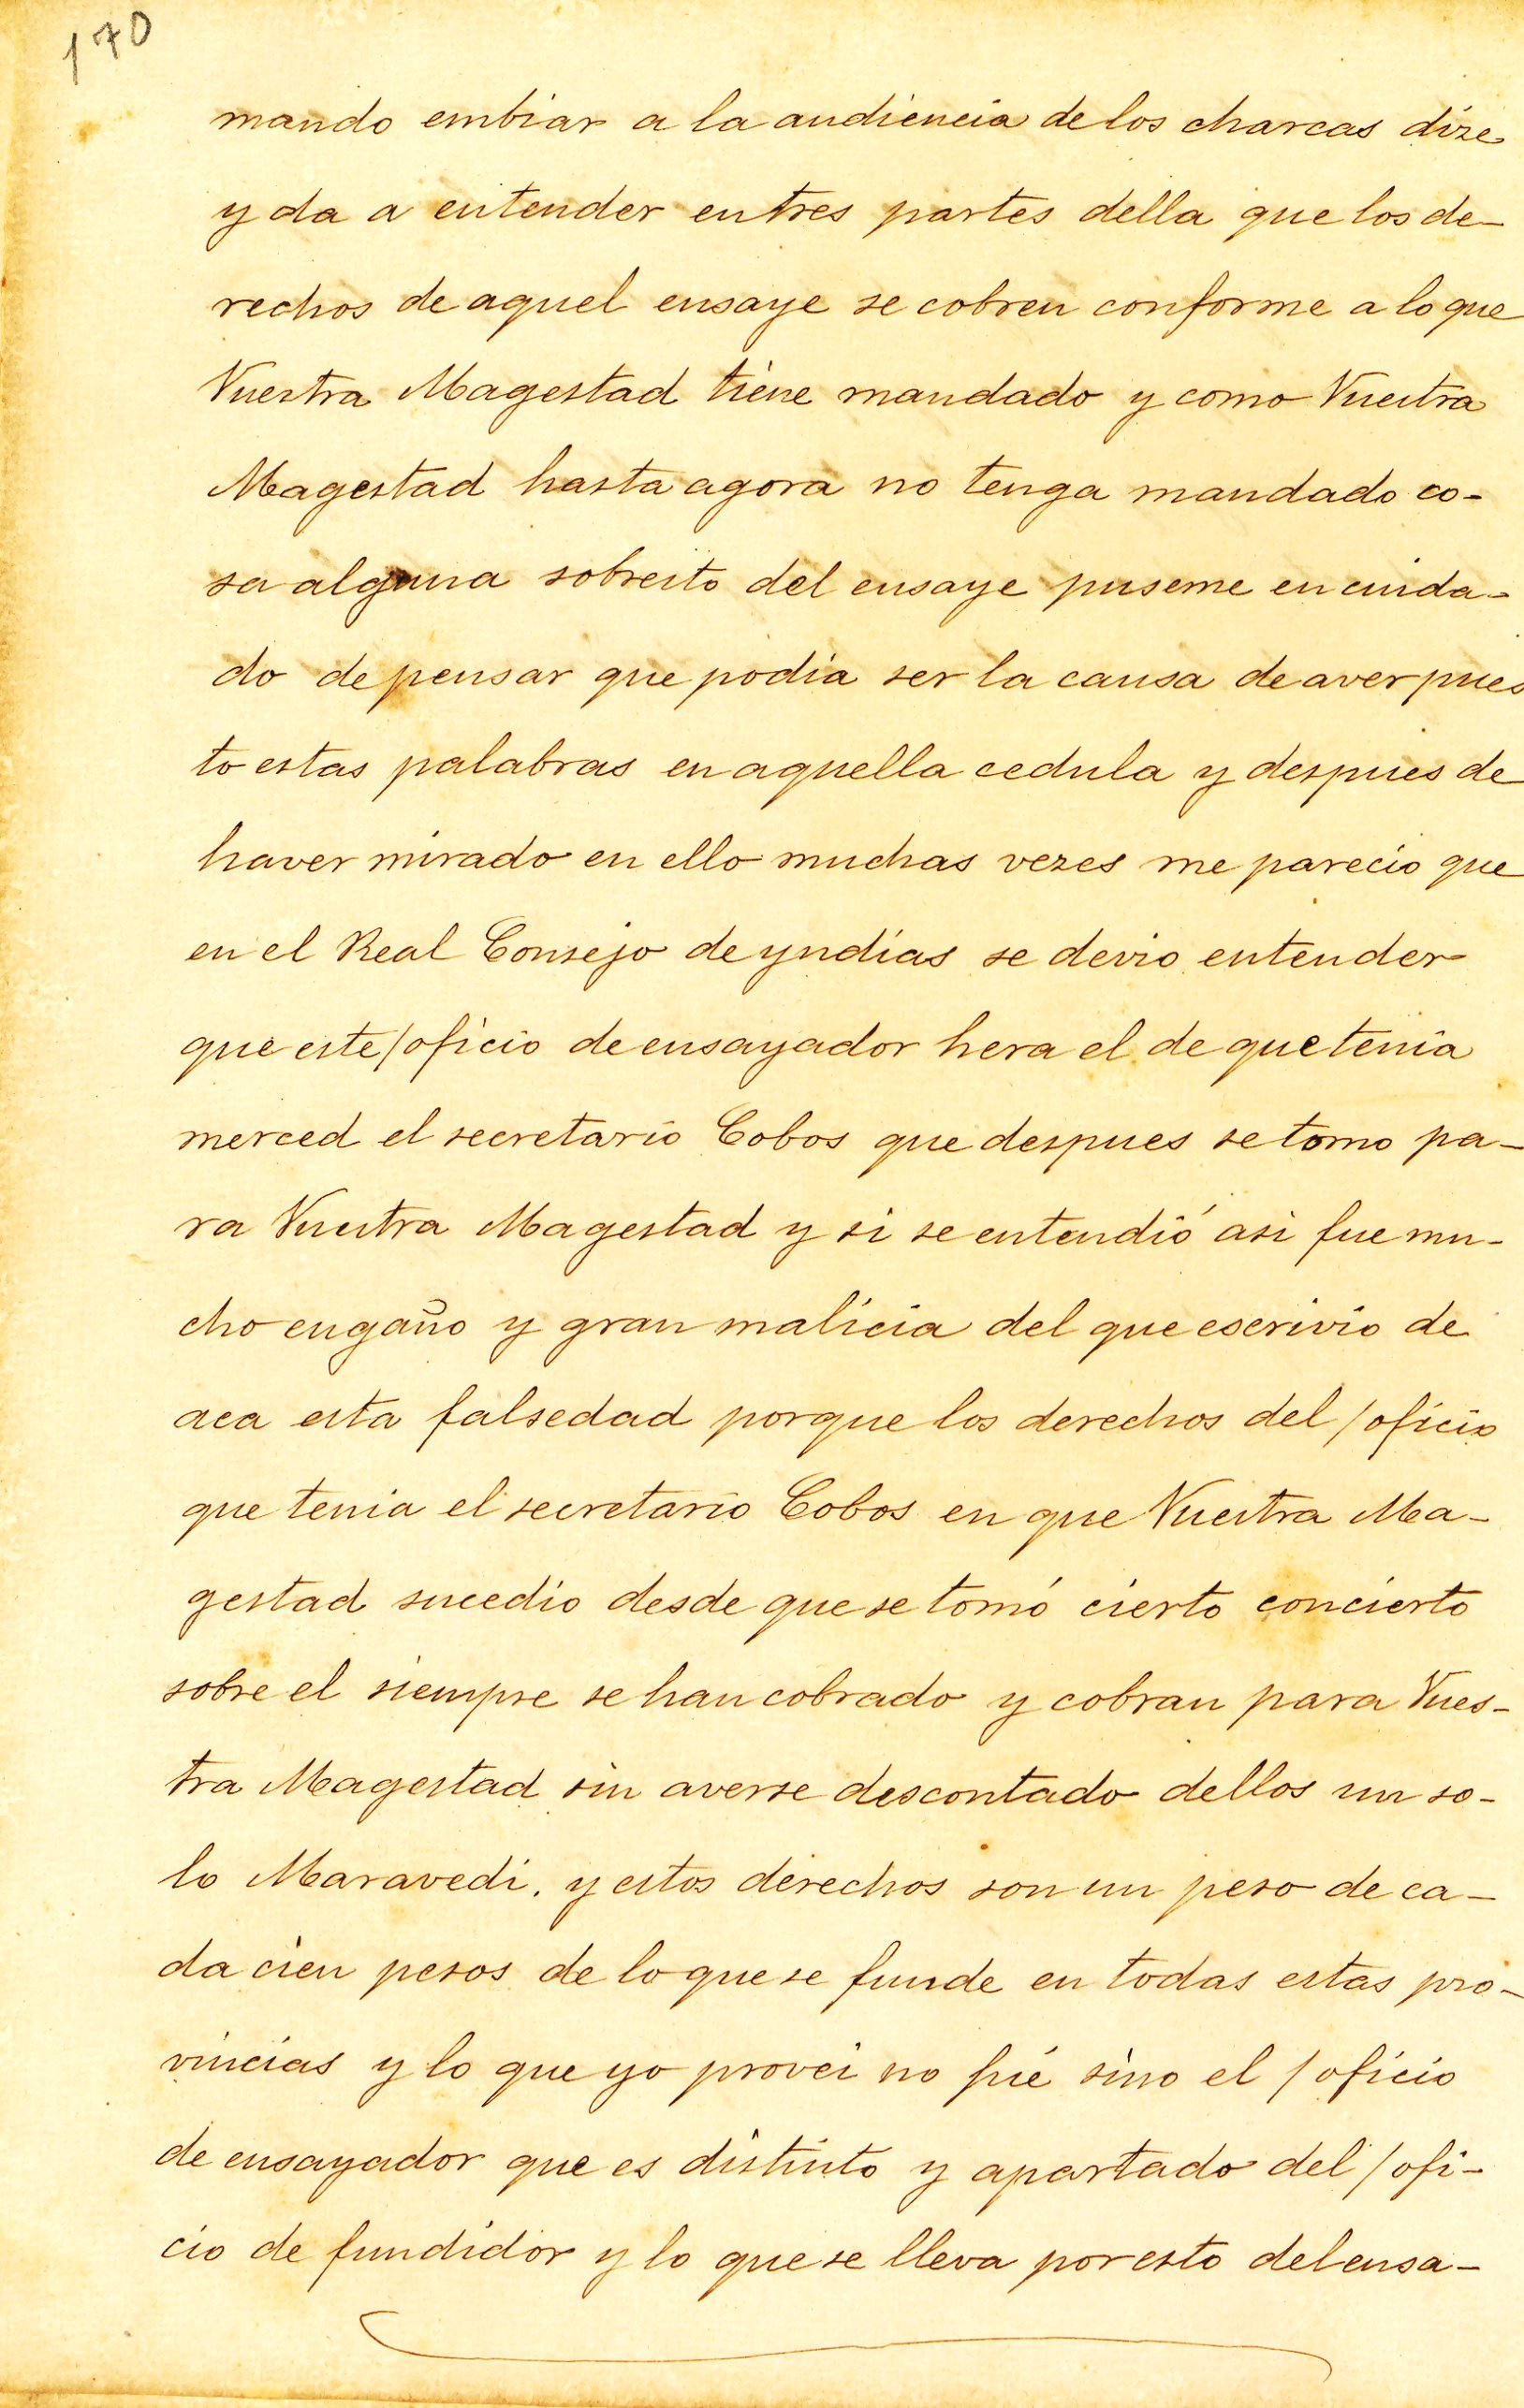 170
mando embiar a la audiencia de los charcas dize
y da a entender en tres partes della que los de-
rechos de aquel ensaye se cobren conforme a lo que
Vuestra Magestad tiene mandado y como Vuestra
Magestad hasta agora no tenga mandado co-
sa alguna sobresto del ensaye puseme en cuida-
do de pensar que podia ser la causa de aver pues
to estas palabras en aquella cedula y despues de
haver mirado en ello muchas vezes me parecio que
en el Real Consejo de yndias se devio entender
que este/oficio de ensayador hera el de que tenia
merced el secretario Cobos que despues se tomo pa-
ra Vuestra Magestad y si se entendió asi fue mu-
cho engaño y gran malicia del que escrivio de
aca esta falsedad porque los derechos del /oficio
que tenia el secretario Cobos en que Vuestra Ma-
gestad sucedio desde que se tomó cierto concierto
sobre el siempre se han cobrado y cobran para Vues-
tra Magestad sin averse descontado dellos un so-
lo Maravedi. y estos derechos son un peso de ca-
da cien pesos de lo que se funde en todas estas pro-
vincias y lo que yo provei no fué sino el /oficio
de ensayador que es distinto y apartado del /ofi-
cio de fundidor y lo que se lleva por esto del ensa-